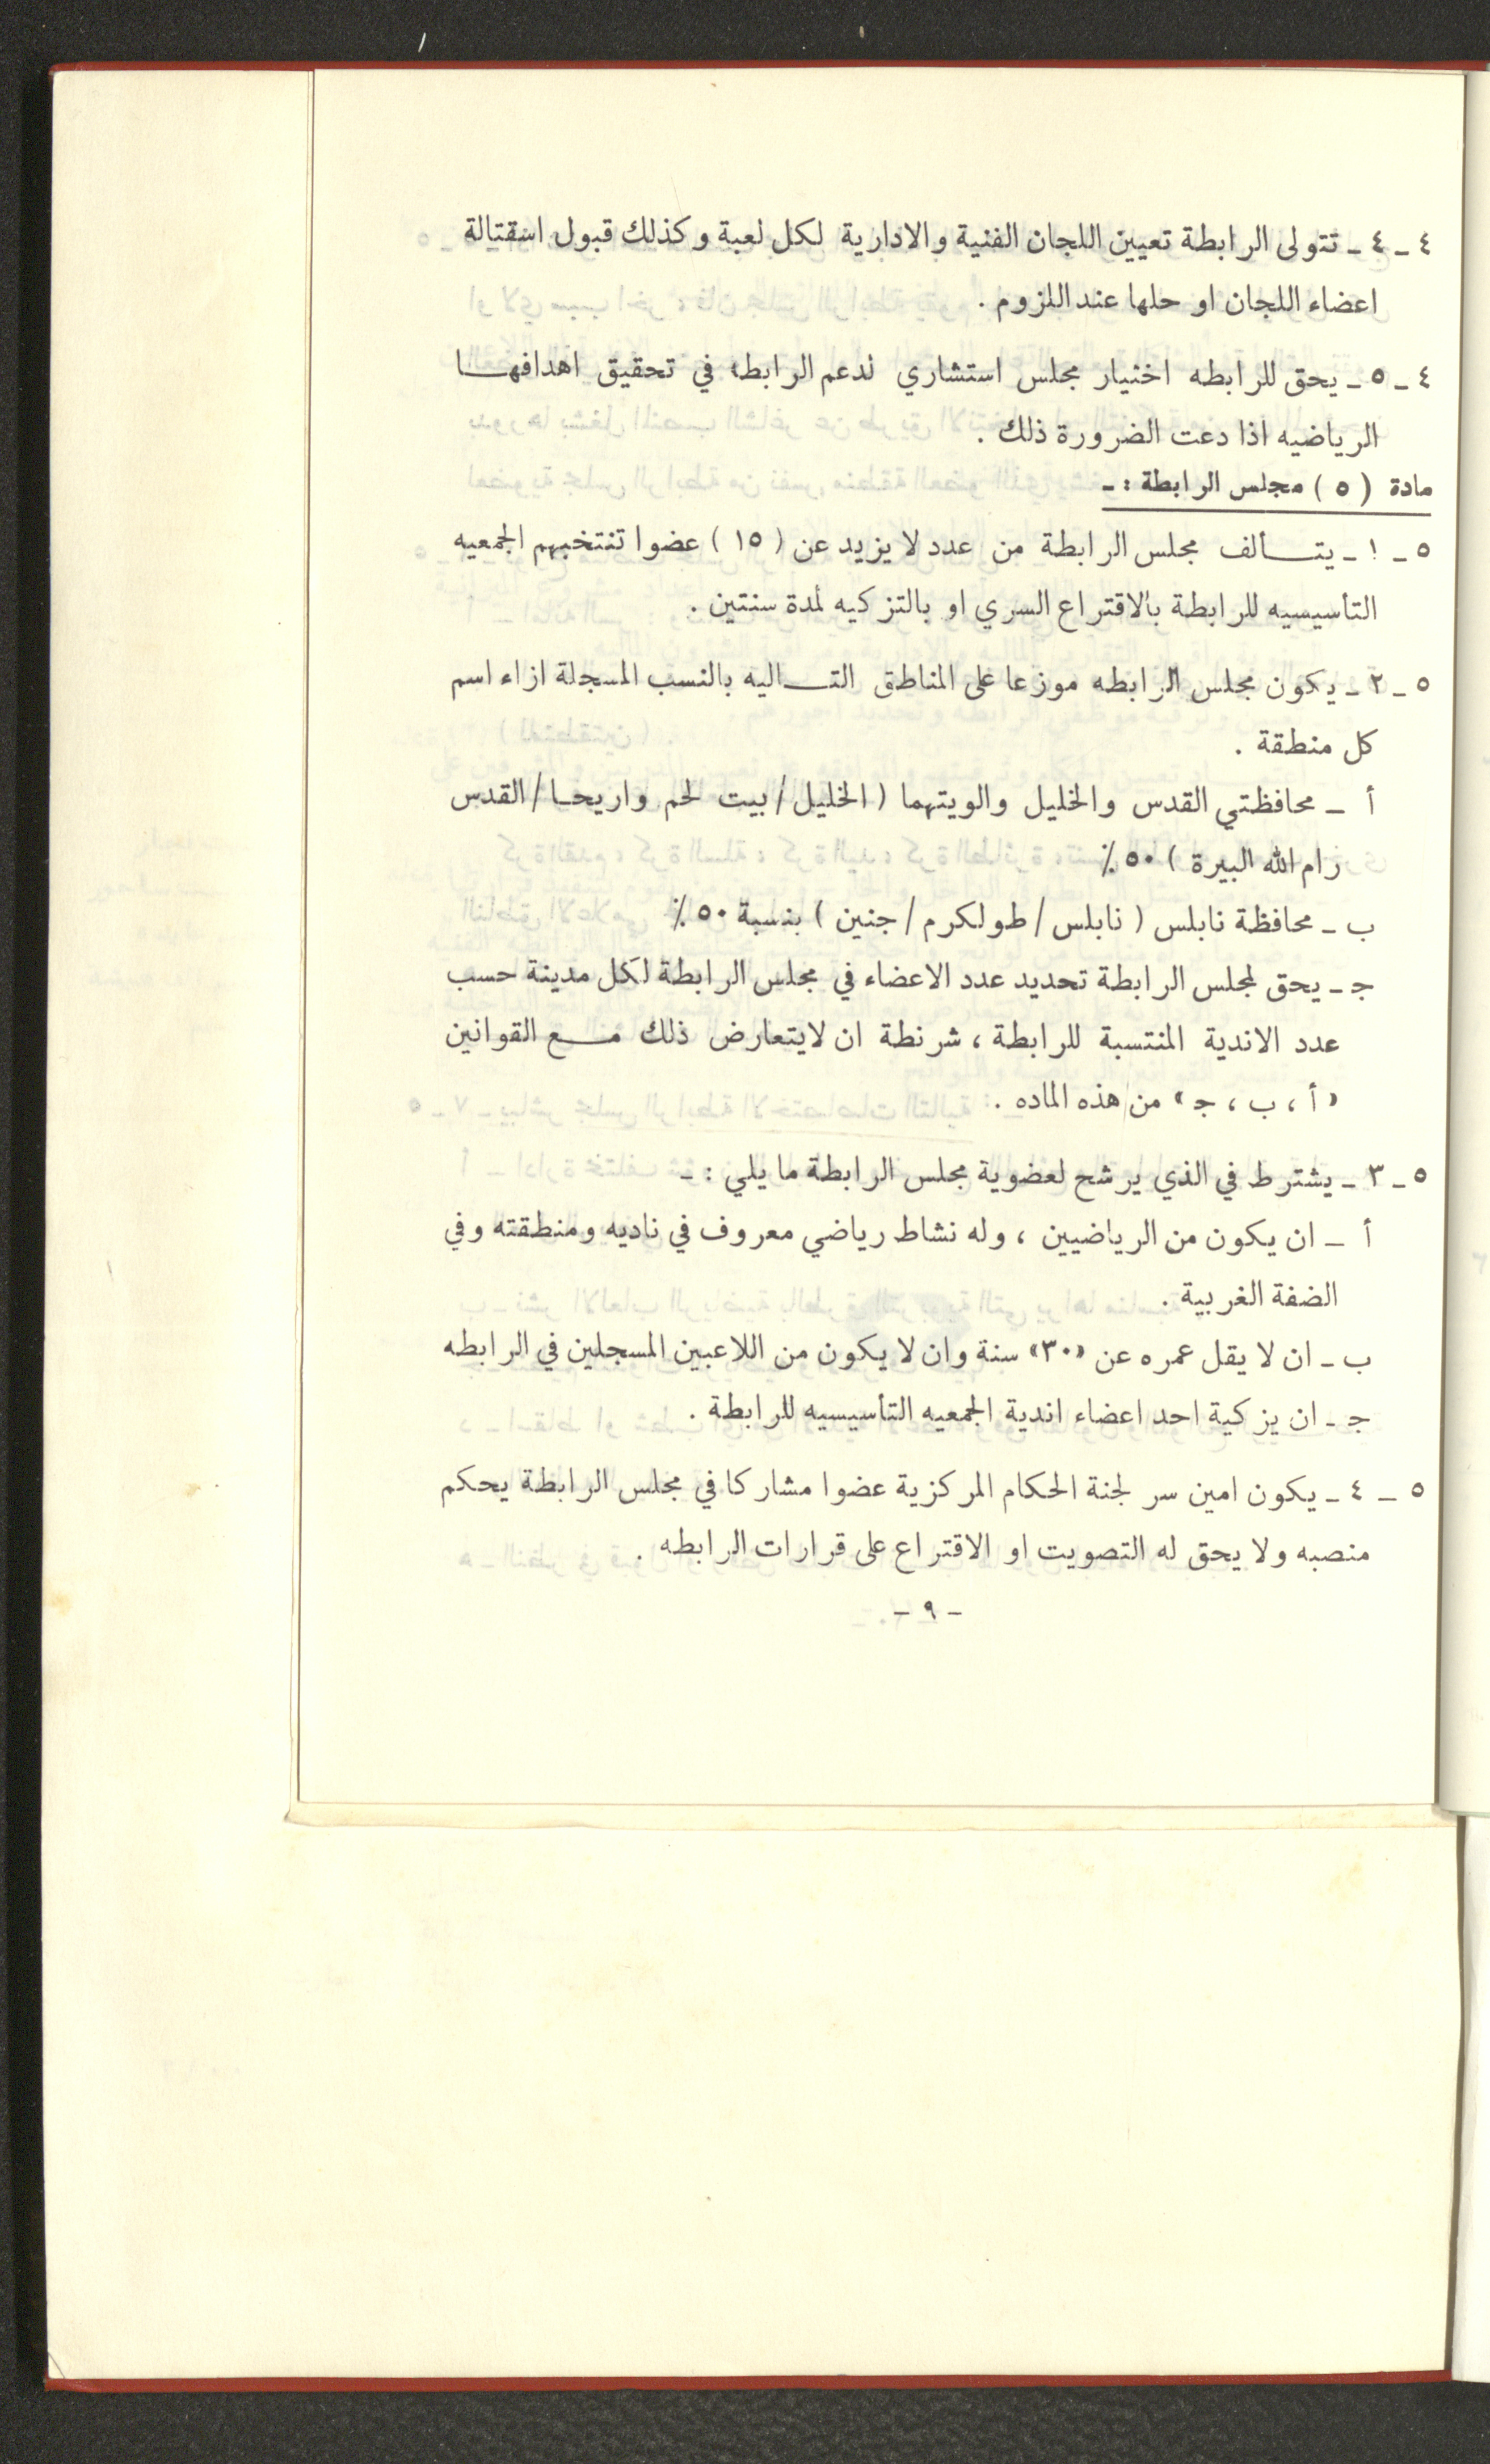 ٤ ـ ٤ ـ تتولى الرابطة تعيين اللجان الفنية والادارية لكل لعبة وكذلك قبول اسقتالة
اعضاء اللجان او حلها عند اللزوم .
٤ ـ ٥ ـ يحق للرابطه اختيار مجلس استشاري لدعم الرابطة في تحقيق اهدافهـــا
الرياضيه اذا دعت الضرورة ذلك .
مادة ( ٥ ) مجلس الرابطة : ـ
٥ ـ ١ ـ يتـــألف مجلس الرابطة من عدد لا يزيد عن ( ١٥ ) عضوا تنتخبهم الجمعيه
التأسيسيه للرابطة بالاقتراع السري او بالتزكيه لمدة سنتين .
٥ ـ ٢ ـ يكون مجلس الرابطه موزعا على المناطق التـــاليه بالنسب المسجلة ازاء اسم
كل منطقة .
أ ـ محافظتي القدس والخليل والويتهما ( الخليل / بيت لحم واريحـا / القدس
رام الله البيرة ) ٥٠ ٪
ب ـ محافظة نابلس ( نابلس / طولكرم / جنين ) بنسبة ٥٠ ٪
جـ ـ يحق لمجلس الرابطة تحديد عدد الاعضاء في مجلس الرابطة لكل مدينة حسب
عدد الاندية المنتسبة للرابطة ، شرنطة ان لايتعارض ذلك مـــع القوانين
« أ ، ب ، جـ » من هذه الماده .
٥ ـ ٣ ـ يشترط في الذي يرشح لعضوية مجلس الرابطة ما يلي : ـ
أ ـ ان يكون من الرياضيين ، وله نشاط رياضي معروف في ناديه ومنطقته وفي
الضفة الغربية .
ب ـ ان لا يقل عمره عن «٣٠» سنة وان لا يكون من اللاعبين المسجلين في الرابطه
جـ ـ ان يزكية احد اعضاء اندية الجمعيه التأسيسيه للرابطة .
٥ ـ ٤ ـ يكون امين سر لجنة الحكام المركزية عضوا مشاركا في مجلس الرابطة يحكم
منصبه ولا يحق له التصويت او الاقتراع على قرارات الرابطه .
ـ ٩ ـ